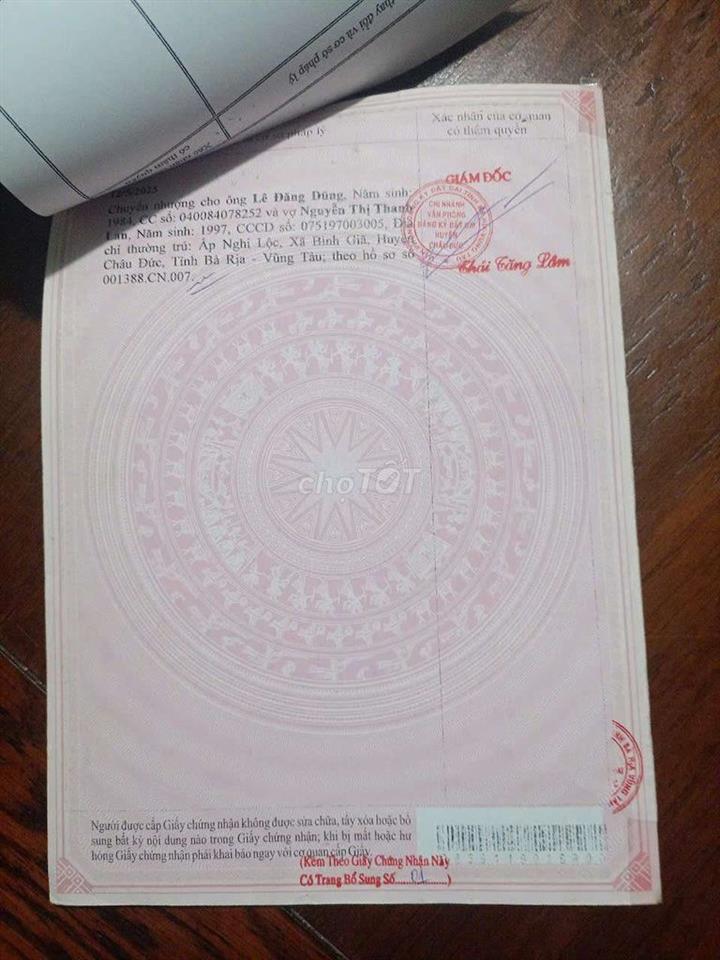 thay đổi và cơ sở pháp lý
Xác nhận của cơ quan
có thẩm quyền
pháp lý
12/5/2025
Chuyển nhượng cho ông Lê Đăng Dũng, Năm sinh:
1984, CC số: 040084078252 và vợ Nguyễn Thị Thanh
Lan, Năm sinh: 1997, CCCD số: 075197003005, Địa
chỉ thường trú: Ấp Nghi Lộc, Xã Bình Giã, Huyện
Châu Đức, Tỉnh Bà Rịa - Vũng Tàu; theo hồ sơ số
001388.CN.007.
GIÁM ĐỐC
CHI NHÁNH
VĂN PHÒNG
ĐĂNG KÝ ĐẤT ĐAI
HUYỆN
CHÂU ĐỨC
Thái Tăng Lâm
chợTỐT
BÀ RỊA VŨNG TÀU
Người được cấp Giấy chứng nhận không được sửa chữa, tẩy xóa hoặc bổ
sung bất kỳ nội dung nào trong Giấy chứng nhận; khi bị mất hoặc hư
hỏng Giấy chứng nhận phải khai báo ngay với cơ quan cấp Giấy.
(Kèm Theo Giấy Chứng Nhận Này
Có Trang Bổ Sung Số......01......)